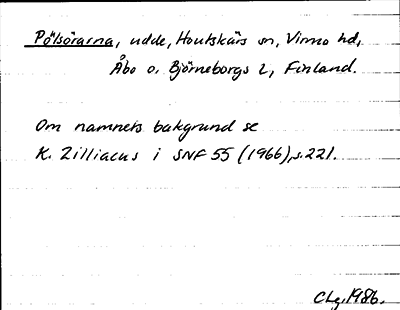 Pölsörarna, udde, Houtskärs sn, Virmo hd,
Åbo o. Björneborgs l, Finland.
Om namnets bakgrund se
K. Zilliacus i SNF 55 (1966), s. 221.
CLg. 1986.